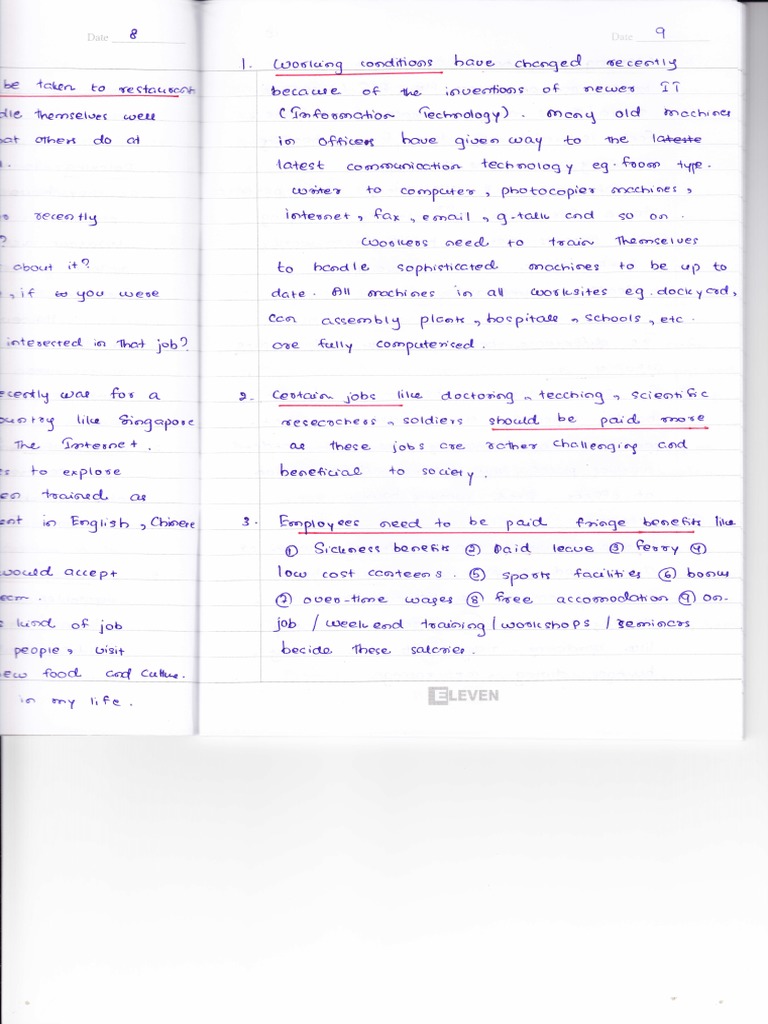 Date 8
be taken to restaurant
dle themselves well
hat others do at
recently
?
about it?
, if to you were
interested in that job?
ecently was for a
ountry like Singapore
The Internet.
s to explore
en trained as
ent in English, Chinese
would accept
eam.
s kind of job
people, visit
ew food and culture.
in my life.
Date 9
1. Working conditions have changed recently
because of the inventions of newer IT
(Information Technology). Many old machines
in offices have given way to the lateste
latest communication technology eg. from type.
writer to computer, photocopier machines,
internet, fax, email, g-talk and so on.
Workers need to train themselves
to handle sophisticated machines to be up to
date. All machines in all worksites eg. dockyard,
car assembly plants, hospitals, schools, etc.
are fully computerised.
2. Certain jobs like doctoring, teaching, scientific
researchers, soldiers should be paid more
as these jobs are rather challenging and
beneficial to society.
3. Employees need to be paid fringe benefits like
① Sickness benefits ② Paid leave ③ ferry ④
low cost canteens. ⑤ sports facilities ⑥ bonus
⑦ over-time wages ⑧ free accomodation ⑨ on-
job / weekend training / workshops / seminars
becide these salaries.
ELEVEN